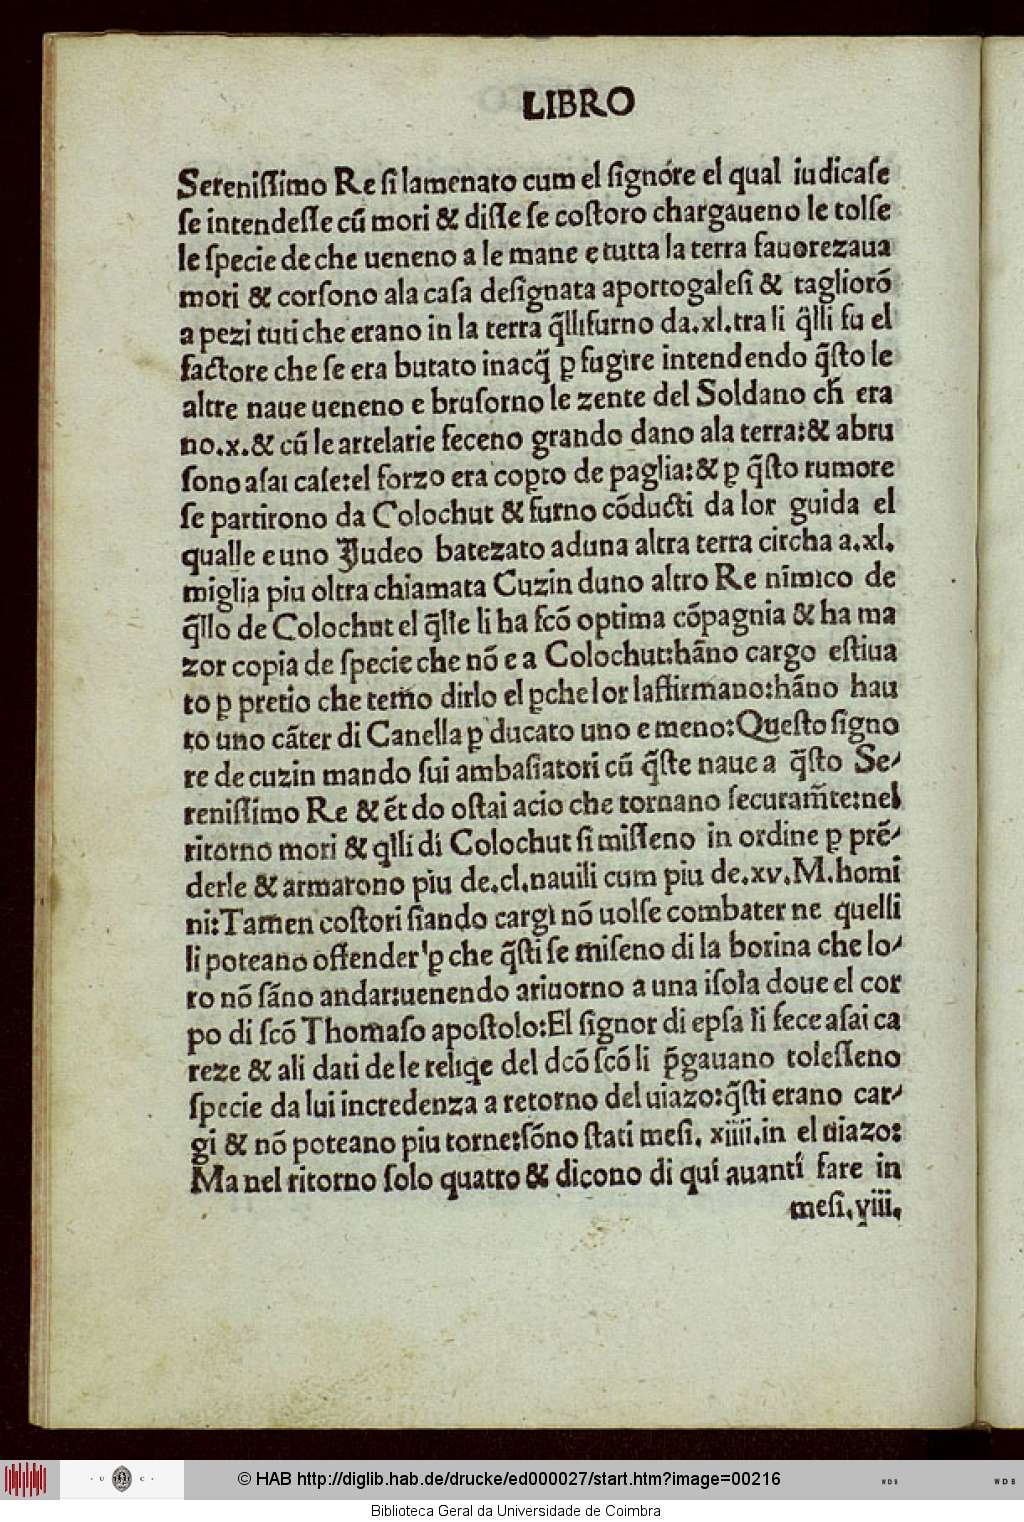 LIBRO
Serenissimo Re si lamenato cum el signore el qual iudicase
se intendesse cū mori & disse se costoro chargaueno le tolse
le specie de che ueneno a le mane e tutta la terra fauorezaua
mori & corsono ala casa designata aportogalesi & tagliorō
a pezi tuti che erano in la terra q̄lli furno da.xl.tra li q̄lli fu el
factore che se era butato inacq̄ ꝑ fugire intendendo q̄sto le
altre naue ueneno e brusorno le zente del Soldano ch̄ era
no.x.& cū le artelarie feceno grando dano ala terra:& abru
sono asai case:el forzo era copto de paglia:& ꝑ q̄sto rumore
se partirono da Colochut & furno cōducti da lor guida el
qualle e uno Judeo batezato aduna altra terra circha a.xl.
miglia piu oltra chiamata Cuzin duno altro Re nīmico de
q̄llo de Colochut el q̄lle li ha fcō optima cōpagnia & ha ma
zor copia de specie che nō e a Colochut:hāno cargo estiua
to ꝑ pretio che temo dirlo el ꝑche lor laffirmano:hāno hau
to uno cāter di Canella ꝑ ducato uno e meno:Questo signo
re de cuzin mando sui ambasiatori cū q̄ste naue a q̄sto Se-
renissimo Re & ēt do ostai acio che tornano securam̄te:nel
ritorno mori & q̄lli di Colochut si misseno in ordine ꝑ prē-
derle & armarono piu de.cl.nauili cum piu de.xv.M.homi
ni:Tamen costori siando cargi nō uolse combater ne quelli
li poteano offender'ꝑ che q̄sti se miseno di la borina che lo-
ro nō sāno andar:uenendo ariuorno a una isola doue el cor
po di scō Thomaso apostolo:El signor di epsa li fece asai ca
reze & ali dati de le reliqe del dcō scō li p̄gauano tolesseno
specie da lui incredenza a retorno del uiazo:q̄sti erano car-
gi & nō poteano piu torne:sōno stati mesi. xiiii.in el uiazo:
Ma nel ritorno solo quatro & dicono di qui auanti fare in
mesi.viii.
© HAB http://diglib.hab.de/drucke/ed000027/start.htm?image=00216
Biblioteca Geral da Universidade de Coimbra